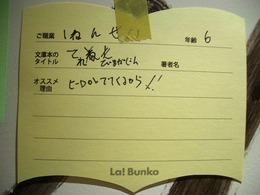 ご職業 1ねんせい 年齢 6
文庫本の
タイトル
著者名
オススメ
理由 ヒーローがでてくるから!!
La! Bunko